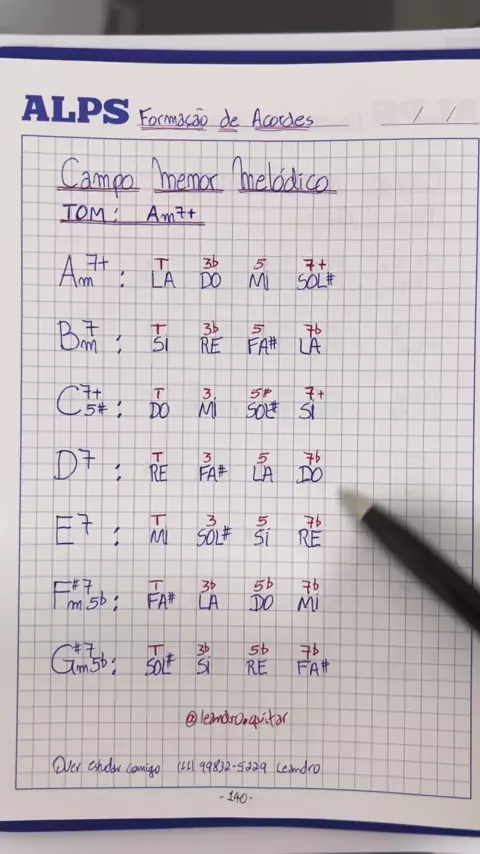 ALPS Formação de Acordes / /
Campo Menor Melódico
TOM: Am7+
Am7+ : T LA 3b DO 5 MI 7+ SOL#
Bm7 : T SI 3b RE 5 FA# 7b LA
C7+ 5# : T DO 3 MI 5# SOL# 7+ SI
D7 : T RE 3 FA# 5 LA 7b DO
E7 : T MI 3 SOL# 5 SI 7b RE
F#7 m5b : T FA# 3b LA 5b DO 7b MI
G#7 m5b : T SOL# 3b SI 5b RE 7b FA#
@leandro.guitar
Quer estudar comigo (11) 99832-5229 Leandro
-140-